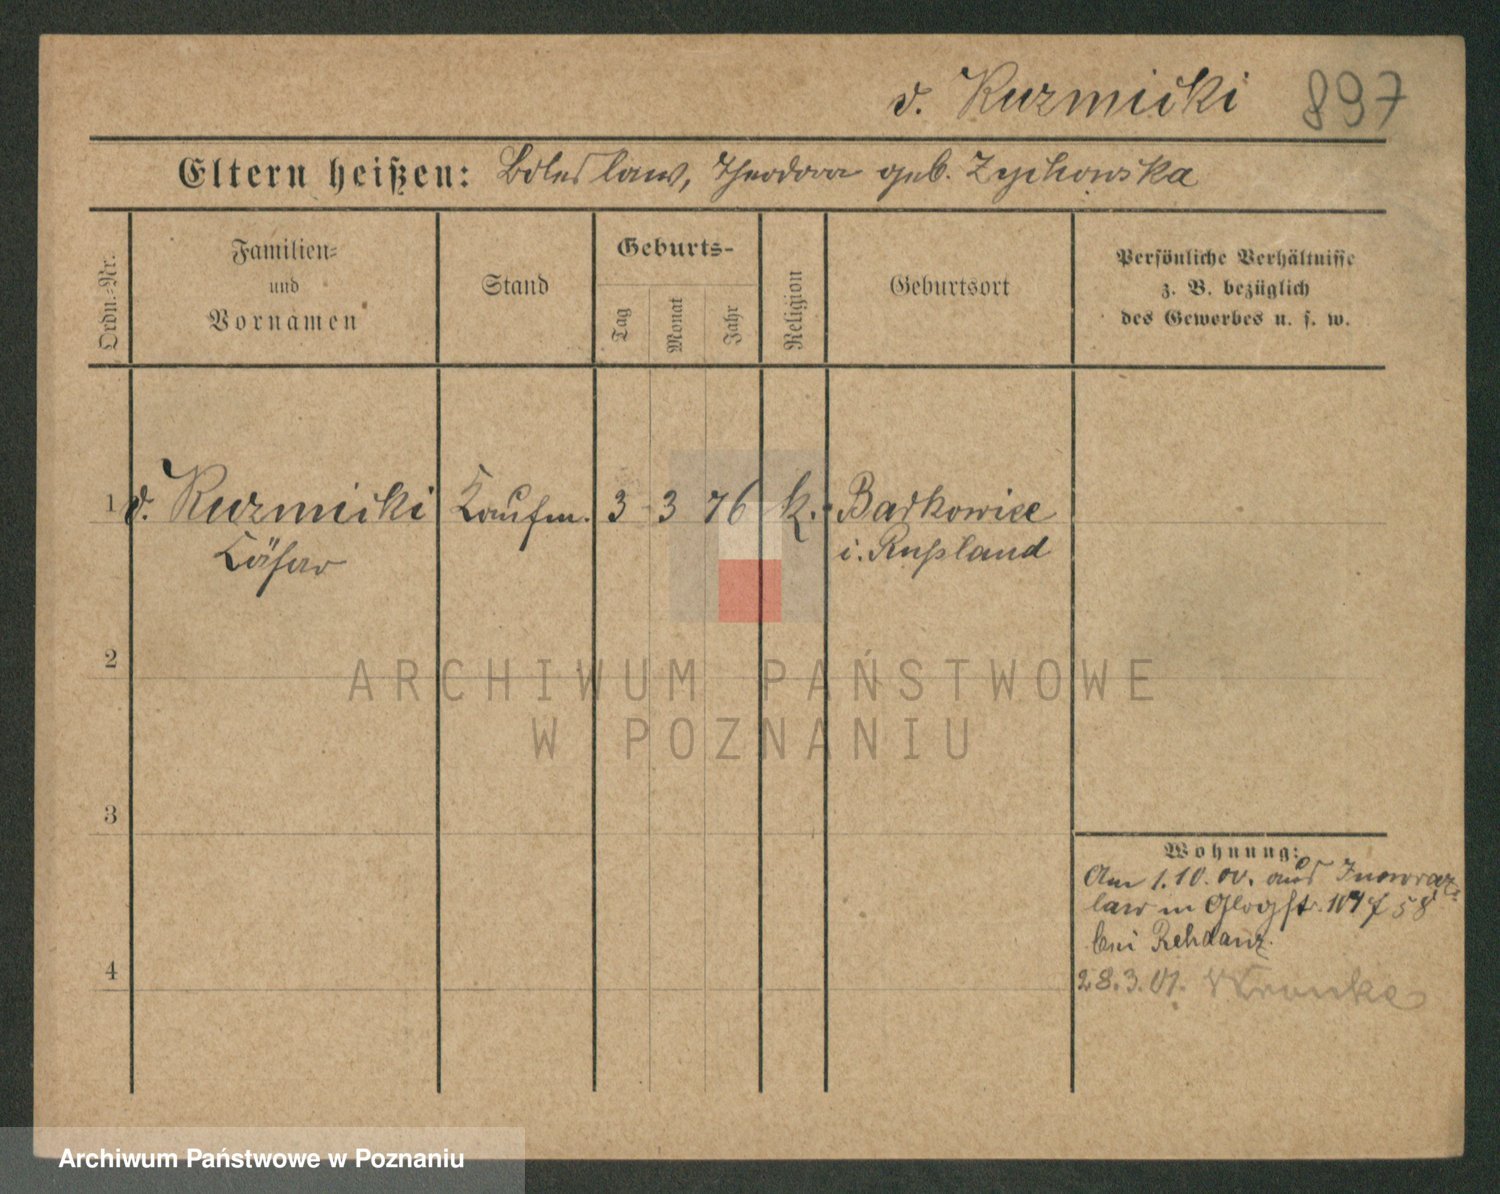 v. Kuzmicki 897
Eltern heißen: Boleslaw, Theodora geb. Zychowska
Ordn.-Nr.
Familien-
und
Vornamen
Stand
Geburts-
Tag
Monat
Jahr
Religion
Geburtsort
Persönliche Verhältnisse
z. B. bezüglich
des Gewerbes u. s. w.
1 v. Kuzmicki Kaufm. 3 3 76 k. Barkowice
Cäsar i. Rußland
2
ARCHIWUM PAŃSTWOWE
W POZNANIU
3
Wohnung:
Am 1.10.00. aus Inowraz-
law in Glogstr. 104 58
bei Rehdanz.
4
28.3.01. Wronke
Archiwum Państwowe w Poznaniu